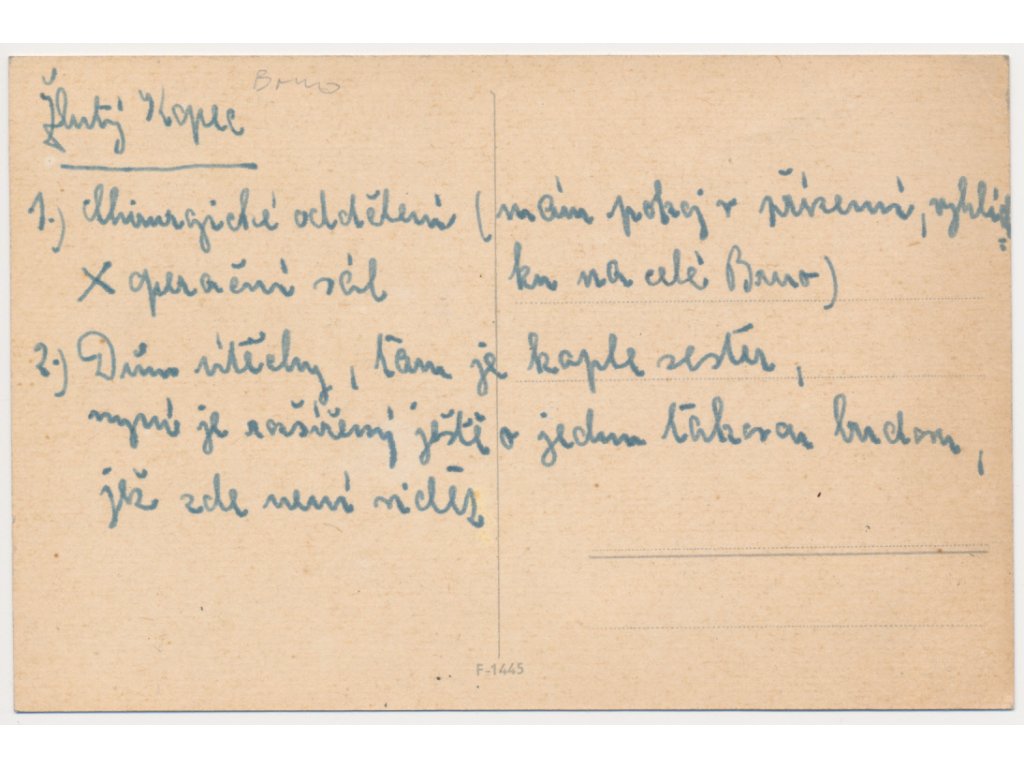 Brno
Žlutý Kopec
1.) Chirurgické oddělení (mám pokoj v přízemí, vyhlíd=
X operační sál ku na celé Brno)
2.) Dům útěchy, tam je kaple sester,
nyní je rozšířený ještě o jednu takovou budovu,
jež zde není vidět
F-1445